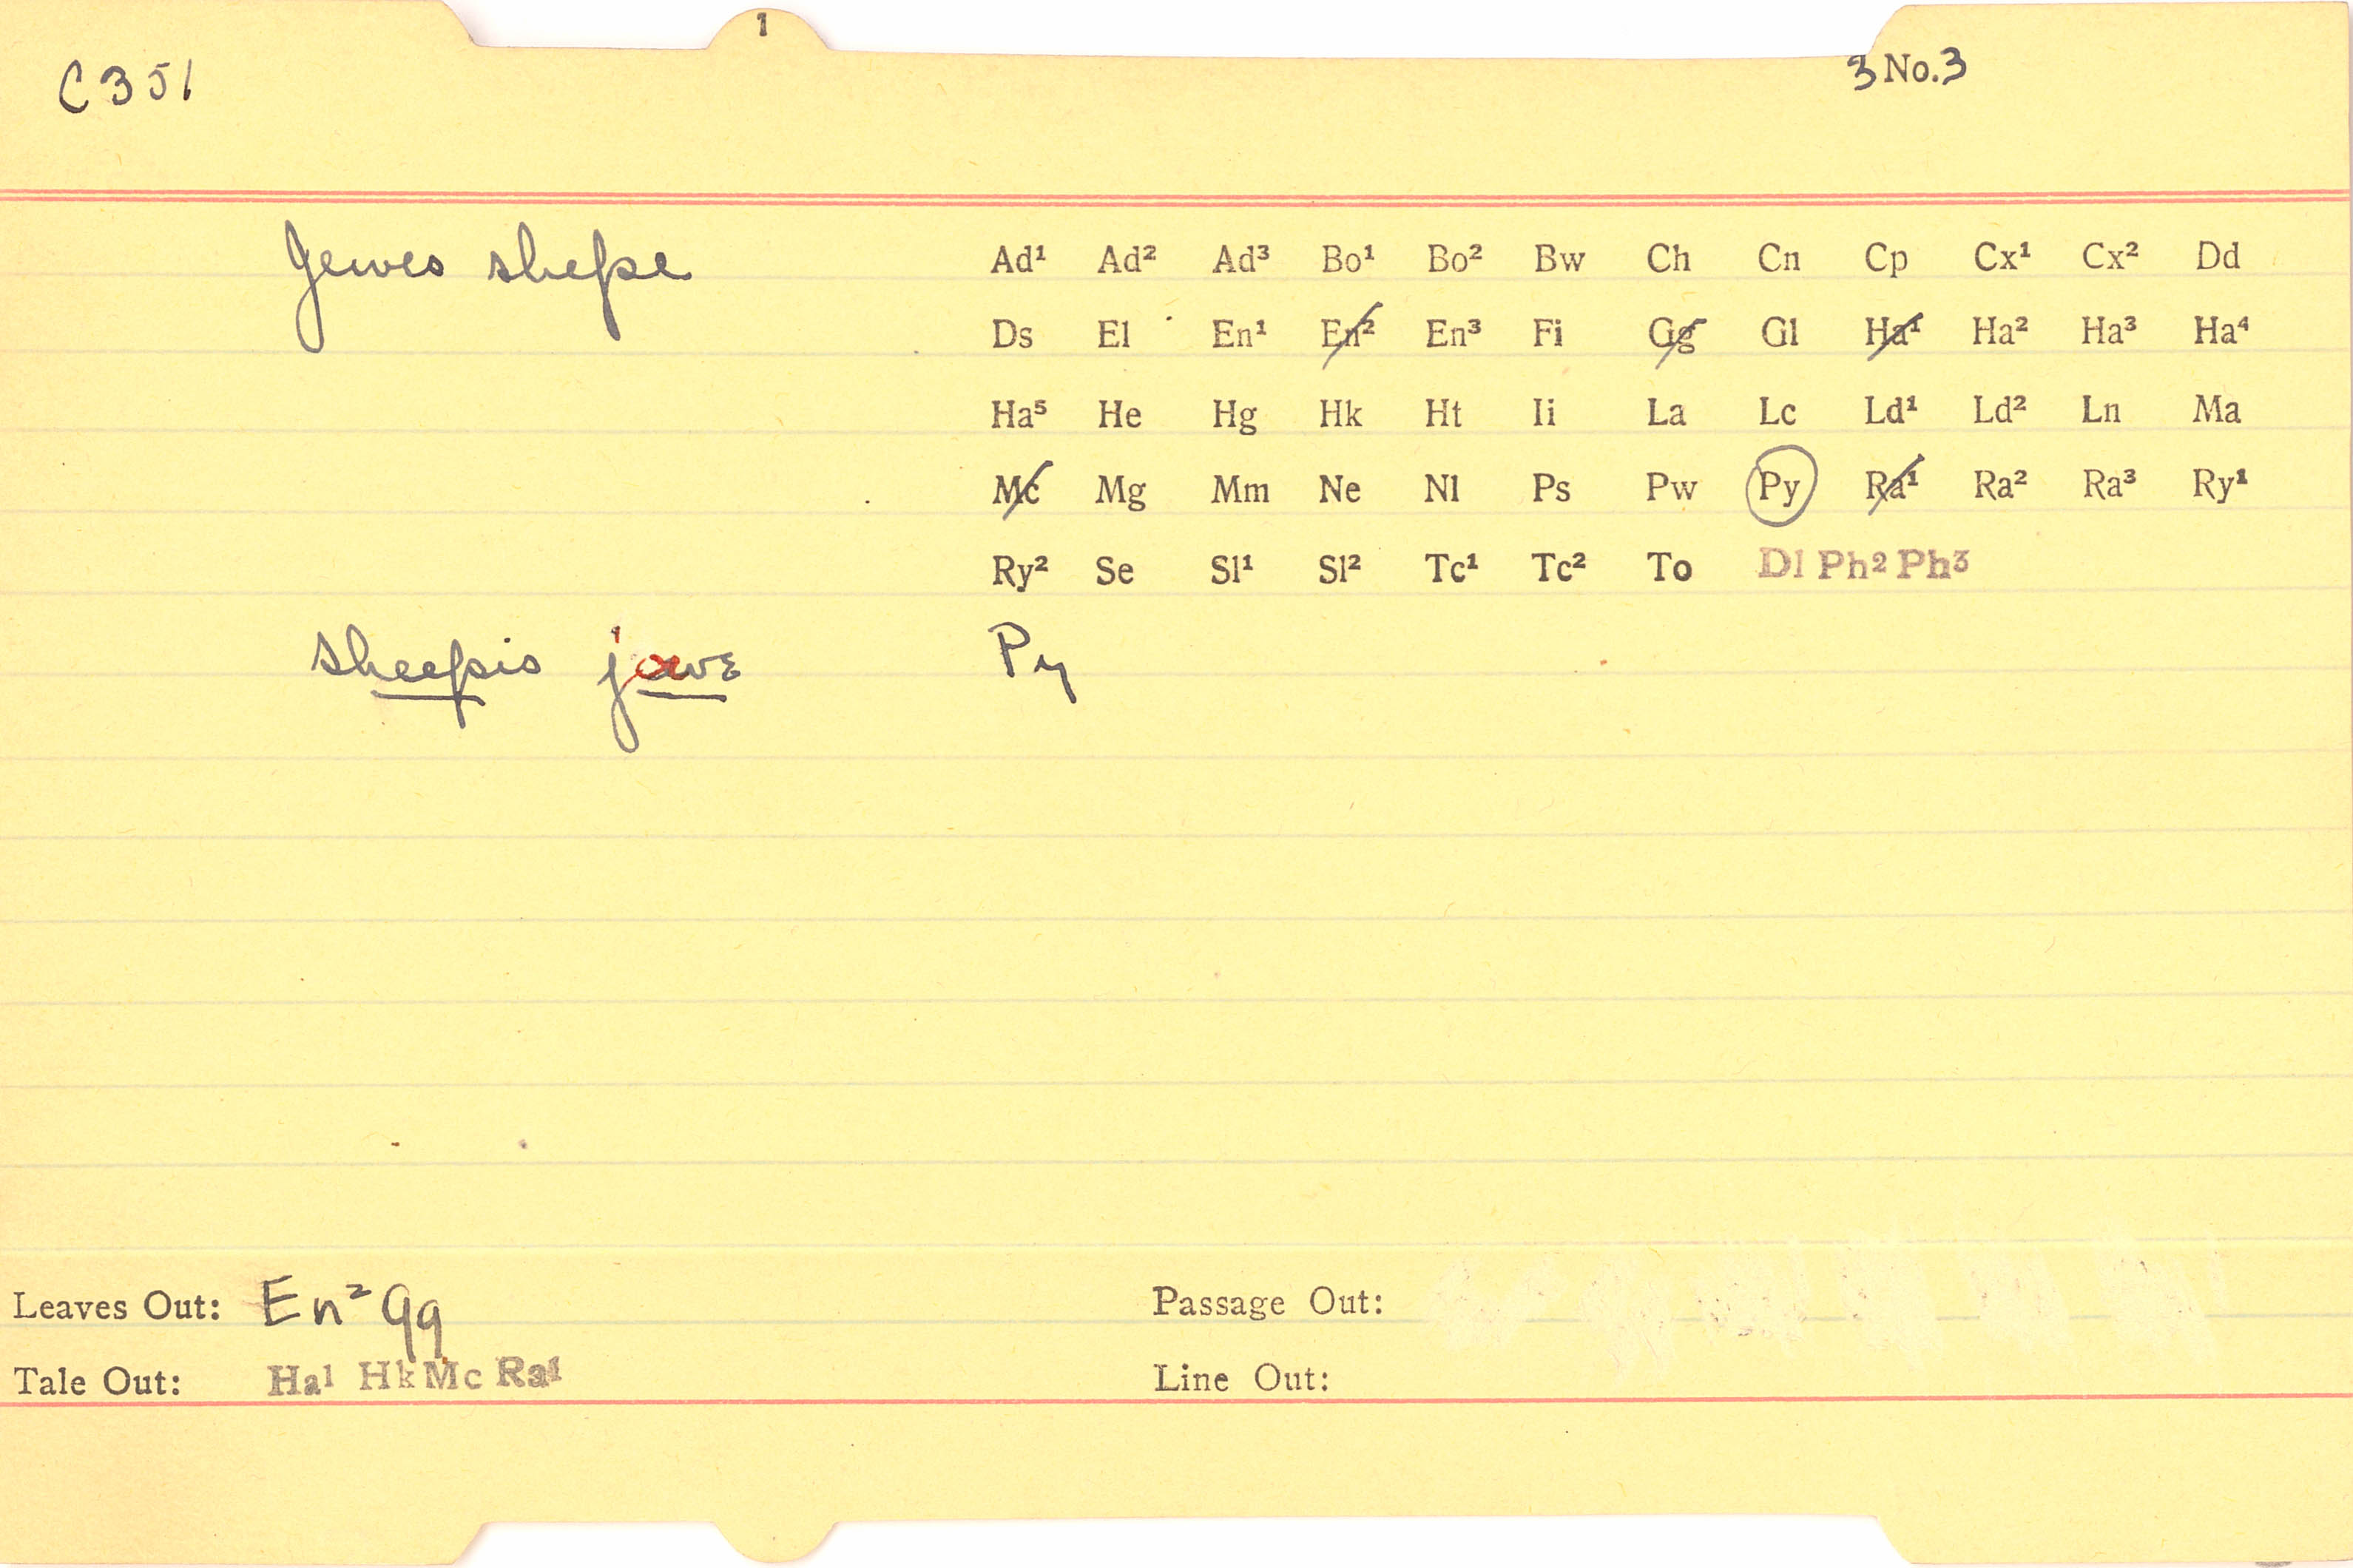 1
C351
3 No. 3
Jewes shepe
Ad¹ Ad² Ad³ Bo¹ Bo² Bw Ch Cn Cp Cx¹ Cx² Dd
Ds El En¹ En² En³ Fi Gg Gl Ha¹ Ha² Ha³ Ha⁴
Ha⁵ He Hg Hk Ht Ii La Lc Ld¹ Ld² Ln Ma
Mc Mg Mm Ne Nl Ps Pw Py Ra¹ Ra² Ra³ Ry¹
Ry² Se Sl¹ Sl² Tc¹ Tc² To Dl Ph² Ph³
sheepis jowe Py
Leaves Out: En² Gg Passage Out:
Tale Out: Ha¹ Hk Mc Ra¹ Line Out: